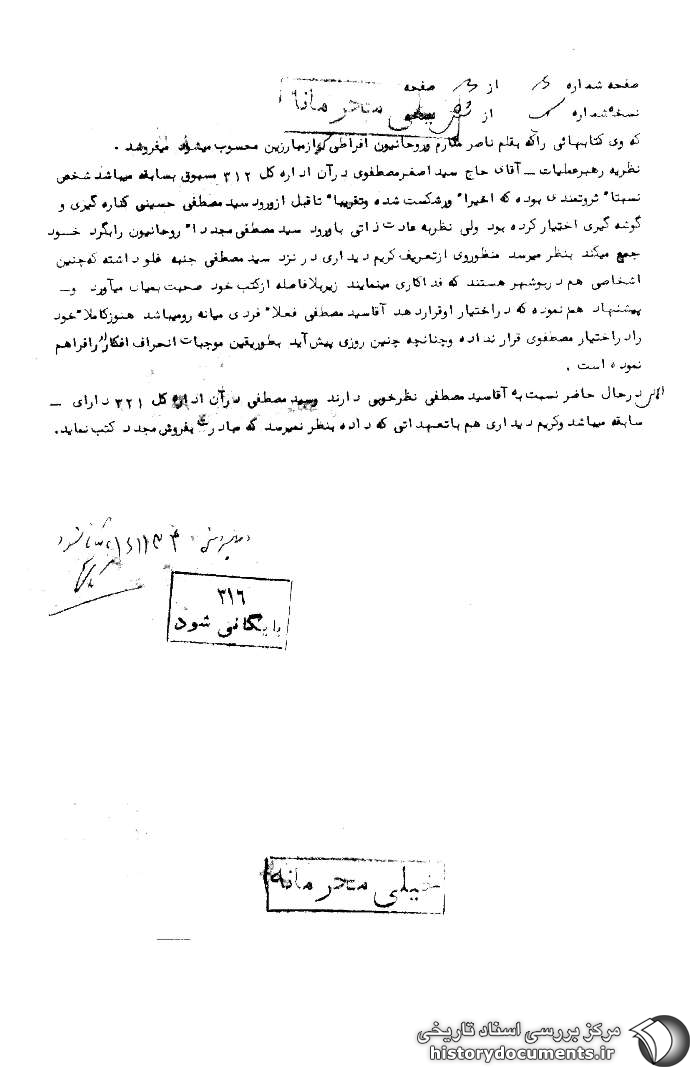 صفحه شماره ۳ از ۳ صفحه
نسخه شماره از
خیلی محرمانه
که وی کتابهائی راکه بقلم ناصر مکارم وروحانیون افراطی که از مبارزین محسوب میشوند میفروشد .
نظریه رهبرعملیات ـ آقای حاج سید اصغرمصطفوی درآن اداره کل ۳۱۲ مسبوق بسابقه میباشد شخص
نسبتا" ثروتمندی بوده که اخیرا" ورشکست شده وتقریبا" تاقبل ازورود سید مصطفی حسینی کناره گیری و
گوشه گیری اختیار کرده بود ولی نظربه عادت ذاتی باورود سید مصطفی مجددا" روحانیون رابگرد خود
جمع میکند بنظر میرسد منظوروی ازتعریف کریم دیداری در نزد سید مصطفی جنبه غلو داشته که چنین
اشخاصی هم دربوشهر هستند که فداکاری مینمایند زیربلافاصله ازکتب خود صحبت بمیان میآورد و ـ
پیشنهاد هم نموده که دراختیار اوقراردهد آقاسید مصطفی فعلا" فردی میانه رومیباشد هنوزکاملا" خود
رادراختیار مصطفوی قرار نداده وچنانچه چنین روزی پیش آید بطوریقین موجبات انحراف افکار اورافراهم
نموده است .
اهالی درحال حاضر نسبت به آقاسید مصطفی نظرخوبی دارند وسید مصطفی درآن اداره کل ۳۲۱ دارای ـ
سابقه میباشد وکریم دیداری هم باتعهداتی که داده بنظر نمیرسد که مبادرت بفروش مجدد کتب نماید.
۳۱۶
بایگانی شود
خیلی محرمانه
مرکز بررسی اسناد تاریخی
historydocuments.ir